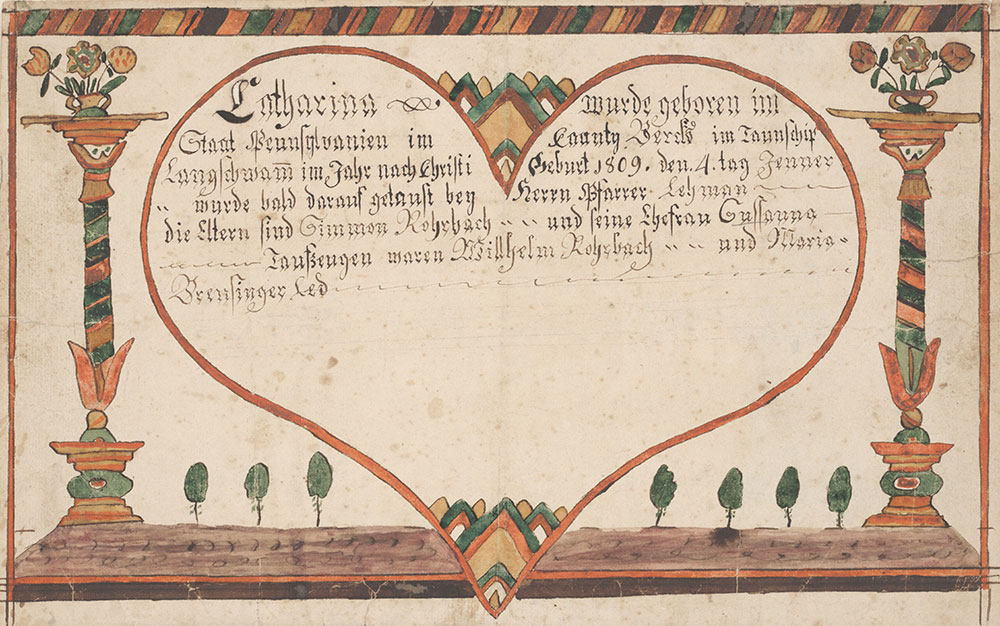 Catharina wurde geboren im
Staat Pennsylvanien im Caunty Bercks im Taunschip
Langschwam̅ im Jahr nach Christi Geburt 1809. den. 4. tag Jenner
„ wurde bald darauf getauft bey Herrn Pfarrer Lehman
die Eltern sind Simmon Rohrbach „ „ und seine Ehefrau Sussanna
Taufzeugen waren Willhelm Rohrbach „ „ und Maria
Brensinger Led